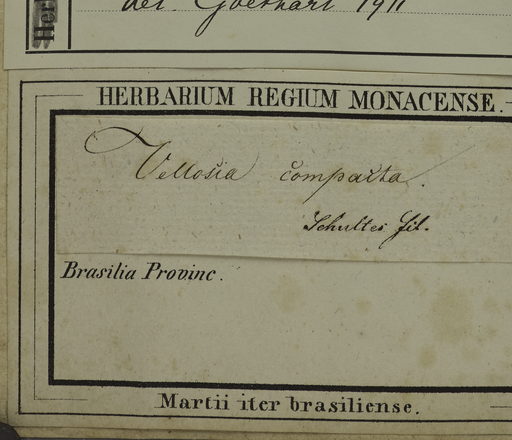 det. Goethart 1911
Her
HERBARIUM REGIUM MONACENSE.
Vellosia compacta.
Schultes fil.
Brasilia Provinc.
Martii iter brasiliense.